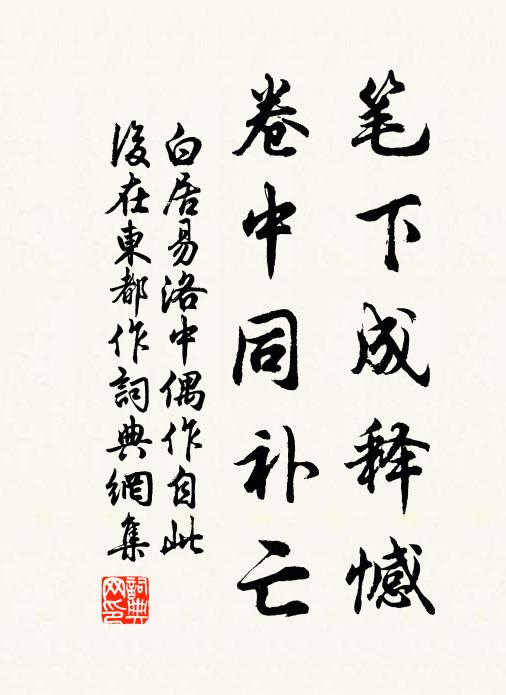 笔下成释憾
卷中同补亡
白居易洛中偶作自此
後在東都作詞典網集
詞典网印